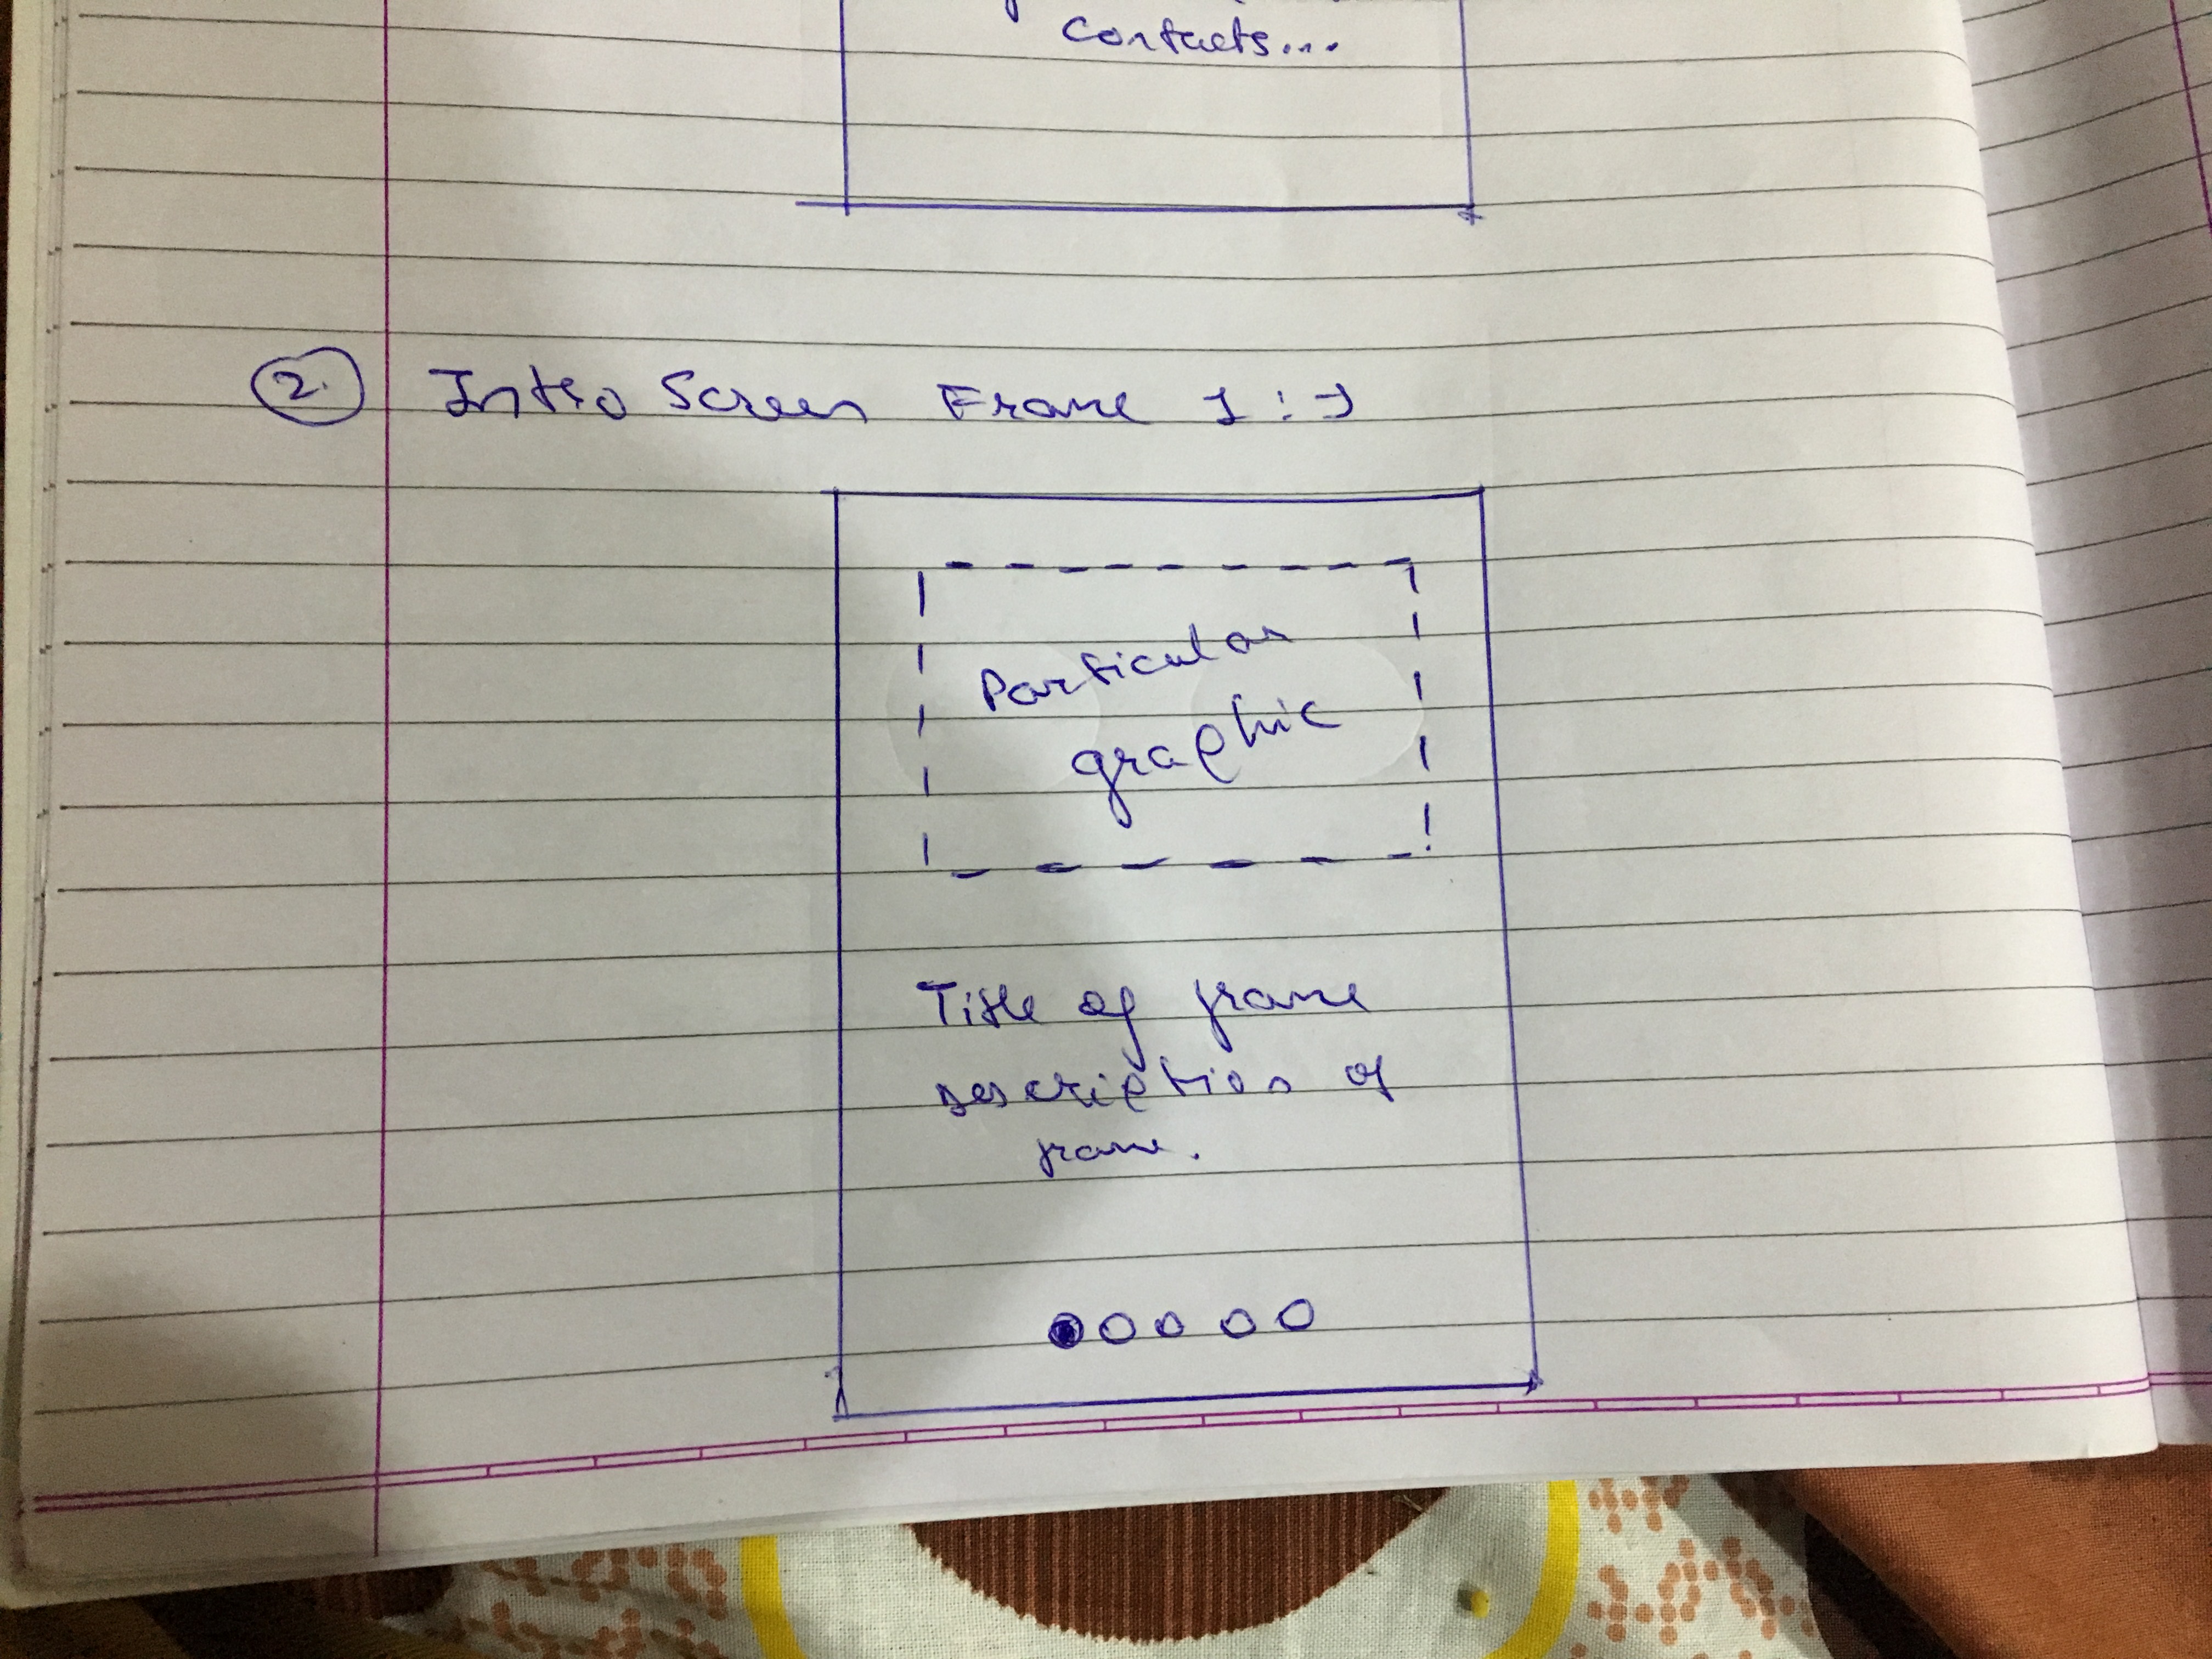 contacts...
2. Intro Screen Frame 1 :-)
Particular
graphic
Title of frame
Description of
frame.